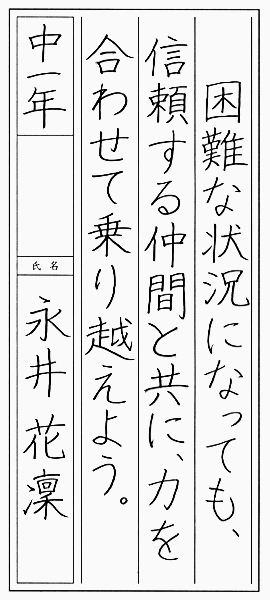 困難な状況になっても、
信頼する仲間と共に、力を
合わせて乗り越えよう。
中一年
氏名
永井花凜